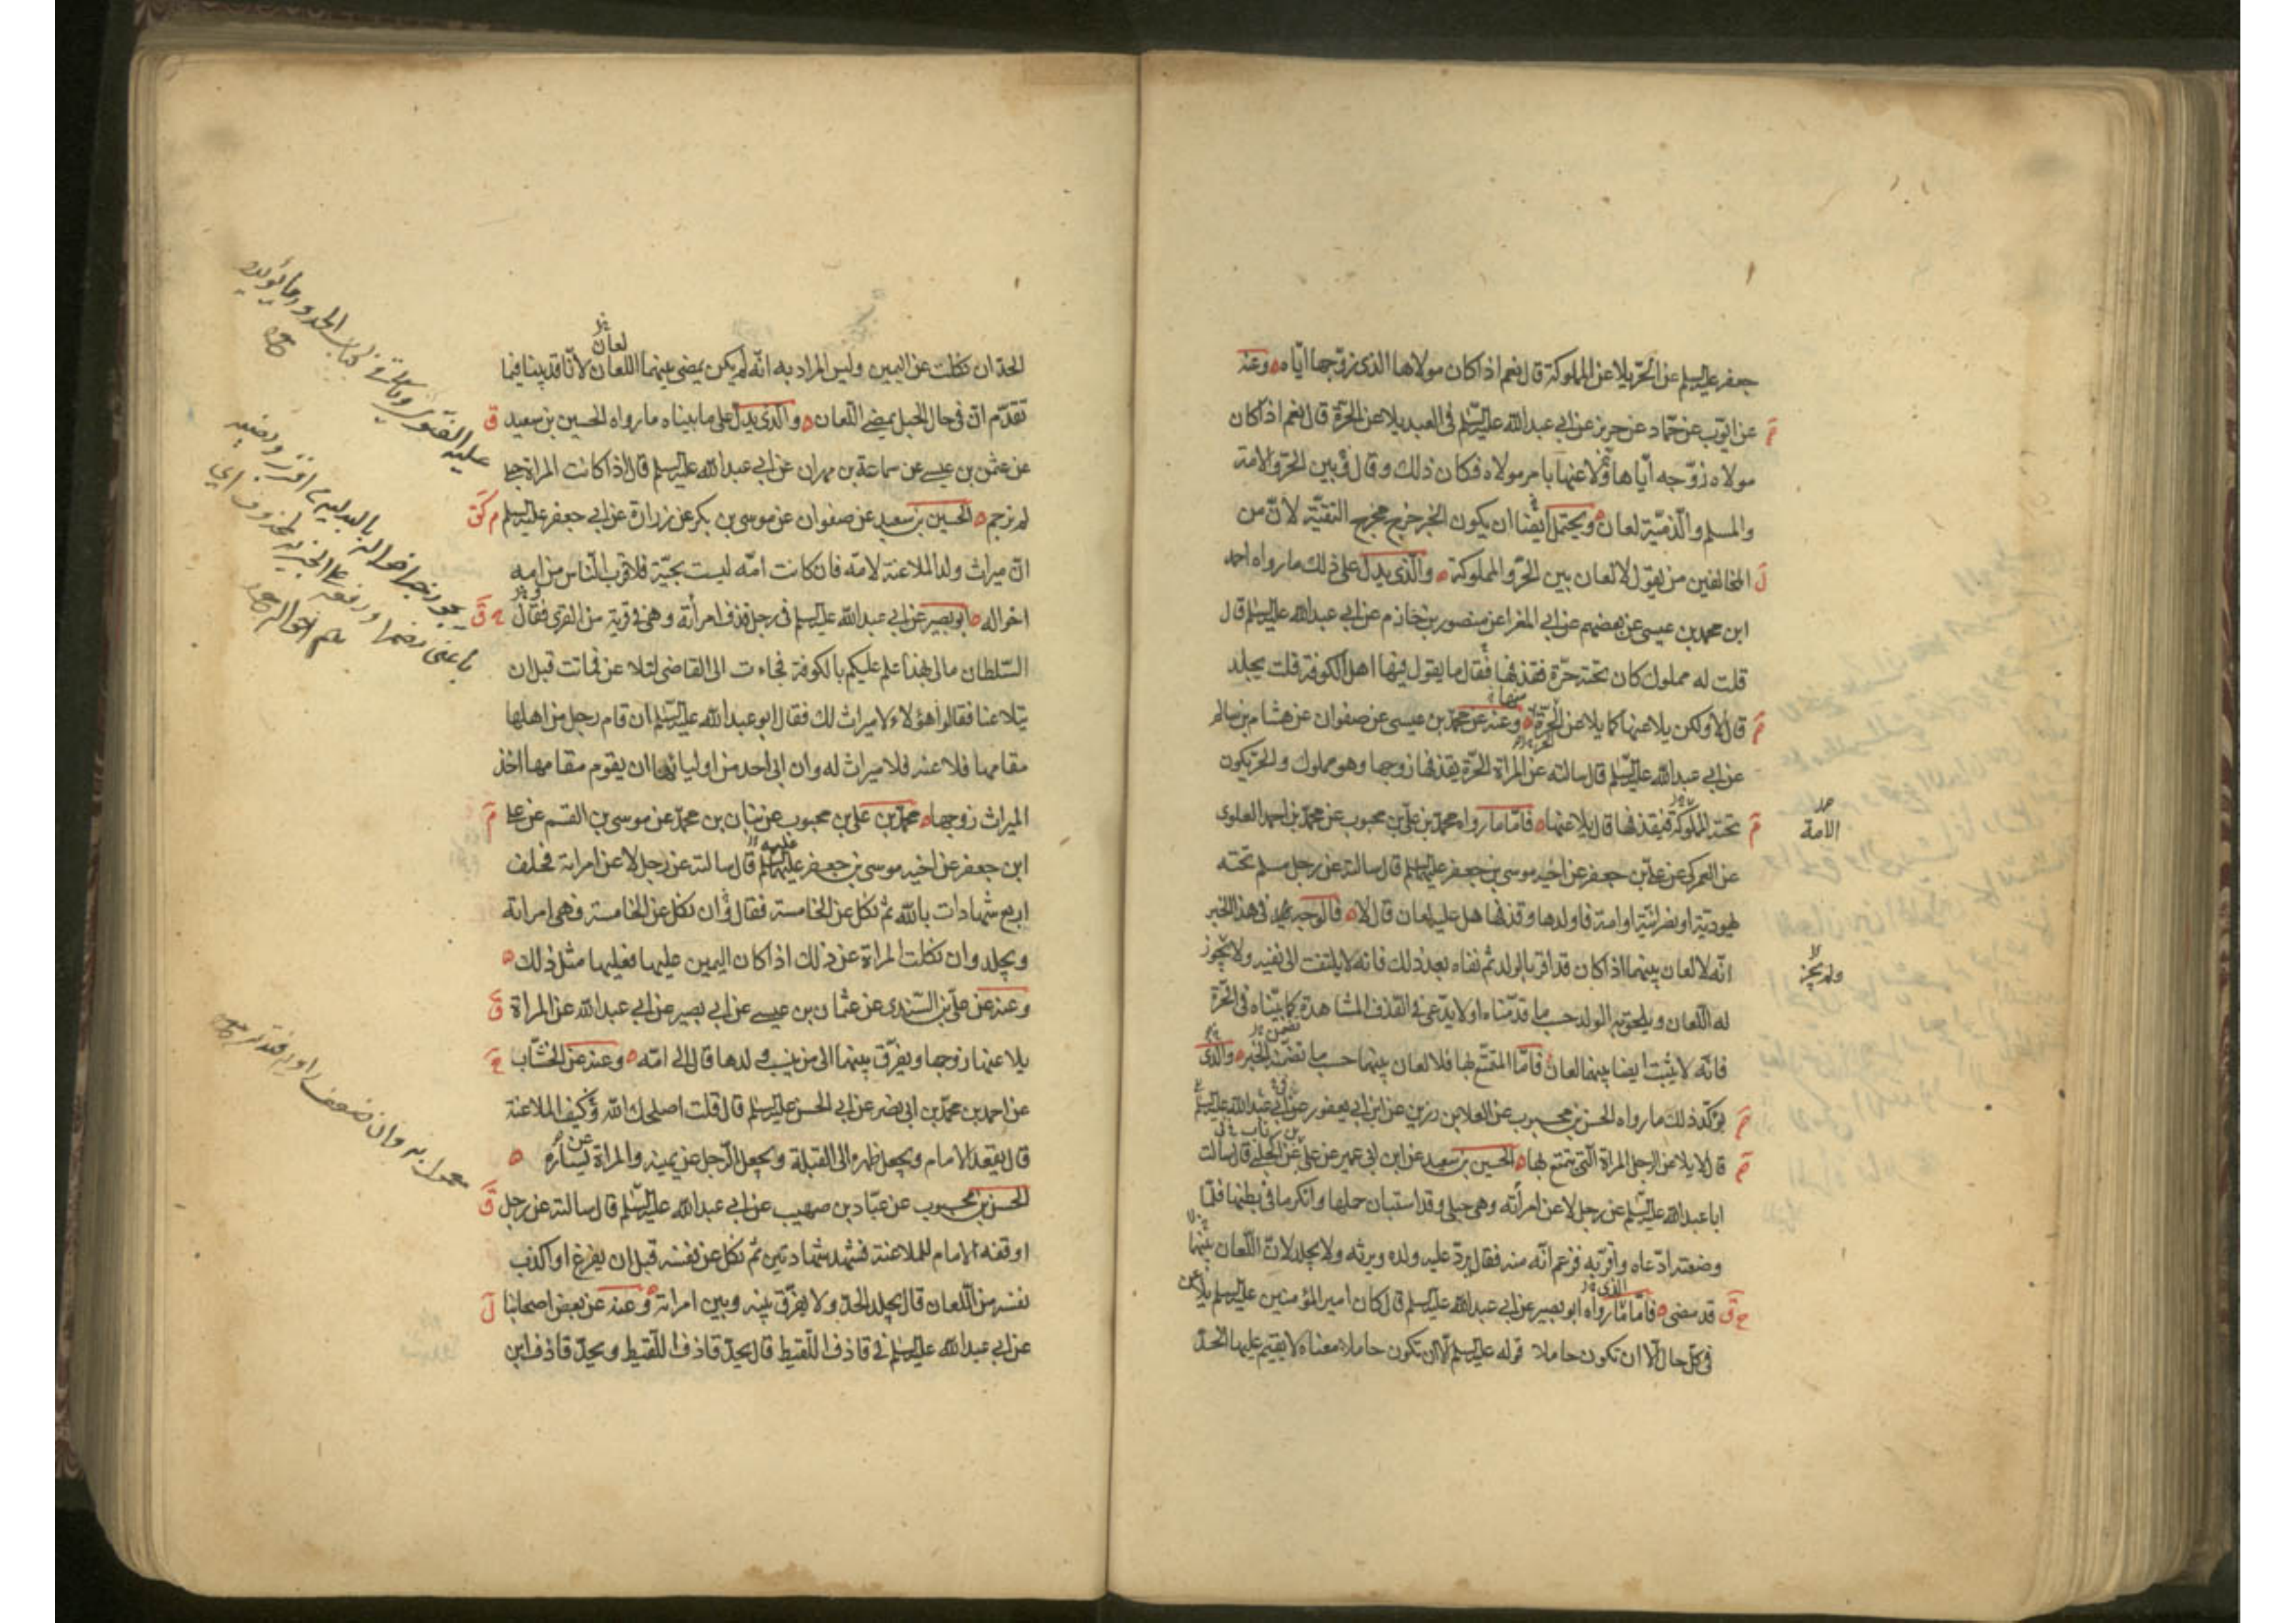 جعفر عليه السلم عن الحر يلاعن المملوكة قال نعم اذا كان مولاها الذى زوجها اياه وعنه
عن ايوب عن حماد عن حريز عن ابي عبد الله عليه السلم في العبد يلاعن الحرة قال نعم اذا كان
مولاه زوجه اياها ولاعنها بامر مولاه فكان ذلك وقال بين الحر والامة
والمسلم والذمية لعان ويحتمل ايضا ان يكون الخبر خرج مخرج التقية لان من
المخالفين من يقول لا لعان بين الحر والمملوكة والذى يدل على ذلك ما رواه احمد
ابن محمد بن عيسى عن بعضهم عن ابي المغرا عن منصور بن حازم عن ابي عبد الله عليه السلم قال
قلت له مملوك كان تحته حرة فقذفها فقال ما يقول فيها اهل الكوفة قلت يجلد
قال لا ولكن يلاعنها كما يلاعن الحرة وعنه عن محمد بن عيسى عن صفوان عن هشام بن سالم
عن ابي عبد الله عليه السلم قال سالته عن المراة الحرة يقذفها زوجها وهو مملوك والحر يكون
تحته المملوكة فيقذفها قال يلاعنها فاما ما رواه محمد بن علي بن محبوب عن محمد بن احمد العلوى
الامة
عن العمركى عن على بن جعفر عن اخيه موسى بن جعفر عليهما السلم قال سالته عن رجل مسلم تحته
يهودية او نصرانية او امة فاولدها وقذفها هل عليه لعان قال لا فالوجه في هذا الخبر
انه لا لعان بينهما اذا كان قد اقر بالولد ثم نفاه بعد ذلك فانه لا يلتفت الى نفيه ولا يجوز
ولم يجز
له اللعان ويلحق به الولد حسب ما قدمناه او لا يدعى في القذف المشاهدة كما بيناه في الحرة
فانه لا يثبت ايضا بينهما لعان فاما المتمتع بها فلا لعان بينهما حسب ما تضمنه الخبر والذى
يؤكد ذلك ما رواه الحسن بن محبوب عن العلا بن رزين عن ابن ابي يعفور عن ابي عبد الله عليه السلم
قال لا يلاعن الرجل المراة التى يتمتع بها الحسين بن سعيد عن ابن ابي عمير عن على عن الحلبي قال سالت
ابا عبد الله عليه السلم عن رجل لاعن امرأته وهى حبلى وقد استبان حملها وانكر ما في بطنها فلما
وضعته ادعاه واقر به فزعم انه منه فقال يرد عليه ولده ويرثه ولا يجلد لان اللعان بينهما
قد مضى فاما ما رواه ابو بصير عن ابي عبد الله عليه السلم قال كان امير المؤمنين عليه السلم يلاعن
في كل حال الا ان تكون حاملا قوله عليه السلم الا ان تكون حاملا معناه لا يقيم عليها الحد
لعان
الحد ان نكلت عن اليمين وليس المراد به انه لم يكن يمضى بينهما اللعان لانا قد بينا فيما
تقدم ان في حال الحبل يمضى اللعان والذى يدل على ما بيناه ما رواه الحسين بن سعيد
عن عثمن بن عيسى عن سماعة بن مهران عن ابي عبد الله عليه السلم قال اذا كانت المراة حبلى
لم ترجم الحسين بن سعيد عن صفوان عن موسى بن بكر عن زرارة عن ابي جعفر عليه السلم
ان ميراث ولد الملاعنة لامه فان كانت امه ليست بحية فلاقرب الناس من امه
اخواله ابو بصير عن ابي عبد الله عليه السلم في رجل قذف امرأته وهى في قرية من القرى فقال
السلطان مالى بهذا علم عليكم بالكوفة فجاءت الى القاضى لتلاعن فماتت قبل ان
يتلاعنا فقالوا هؤلاء لا ميراث لك فقال ابو عبد الله عليه السلم ان قام رجل من اهلها
مقامها فلاعنه فلا ميراث له وان ابى احد من اوليائها ان يقوم مقامها اخذ
الميراث زوجها محمد بن على بن محبوب عن بنان بن محمد عن موسى بن القسم عن على
ابن جعفر عن اخيه موسى بن جعفر عليهما السلم قال سالته عن رجل لاعن امراته فحلف
اربع شهادات بالله ثم نكل عن الخامسة فقال ان نكل عن الخامسة فهى امراته
ويجلد وان نكلت المراة عن ذلك اذا كان اليمين عليها فعليها مثل ذلك
وعنه عن على بن السندى عن عثمان بن عيسى عن ابي بصير عن ابي عبد الله عن المراة
يلاعنها زوجها ويفرق بينهما الى من ينسب ولدها قال الى امه وعنه عن الخشاب
عن احمد بن محمد بن ابي نصر عن ابي الحسن عليه السلم قال قلت اصلحك الله وكيف الملاعنة
قال يقعد الامام ويجعل ظهره الى القبلة ويجعل الرجل عن يمينه والمراة عن يساره
الحسن بن محبوب عن عباد بن صهيب عن ابي عبد الله عليه السلم قال سالته عن رجل
اوقفه الامام للملاعنة فشهد شهادتين ثم نكل عن نفسه قبل ان يفرغ او اكذب
نفسه من اللعان قال يجلد الحد ولا يفرق بينه وبين امراته وعنه عن بعض اصحابنا
عن ابي عبد الله عليه السلم في قاذف اللقيط قال يحد قاذف اللقيط ويحد قاذف ابن